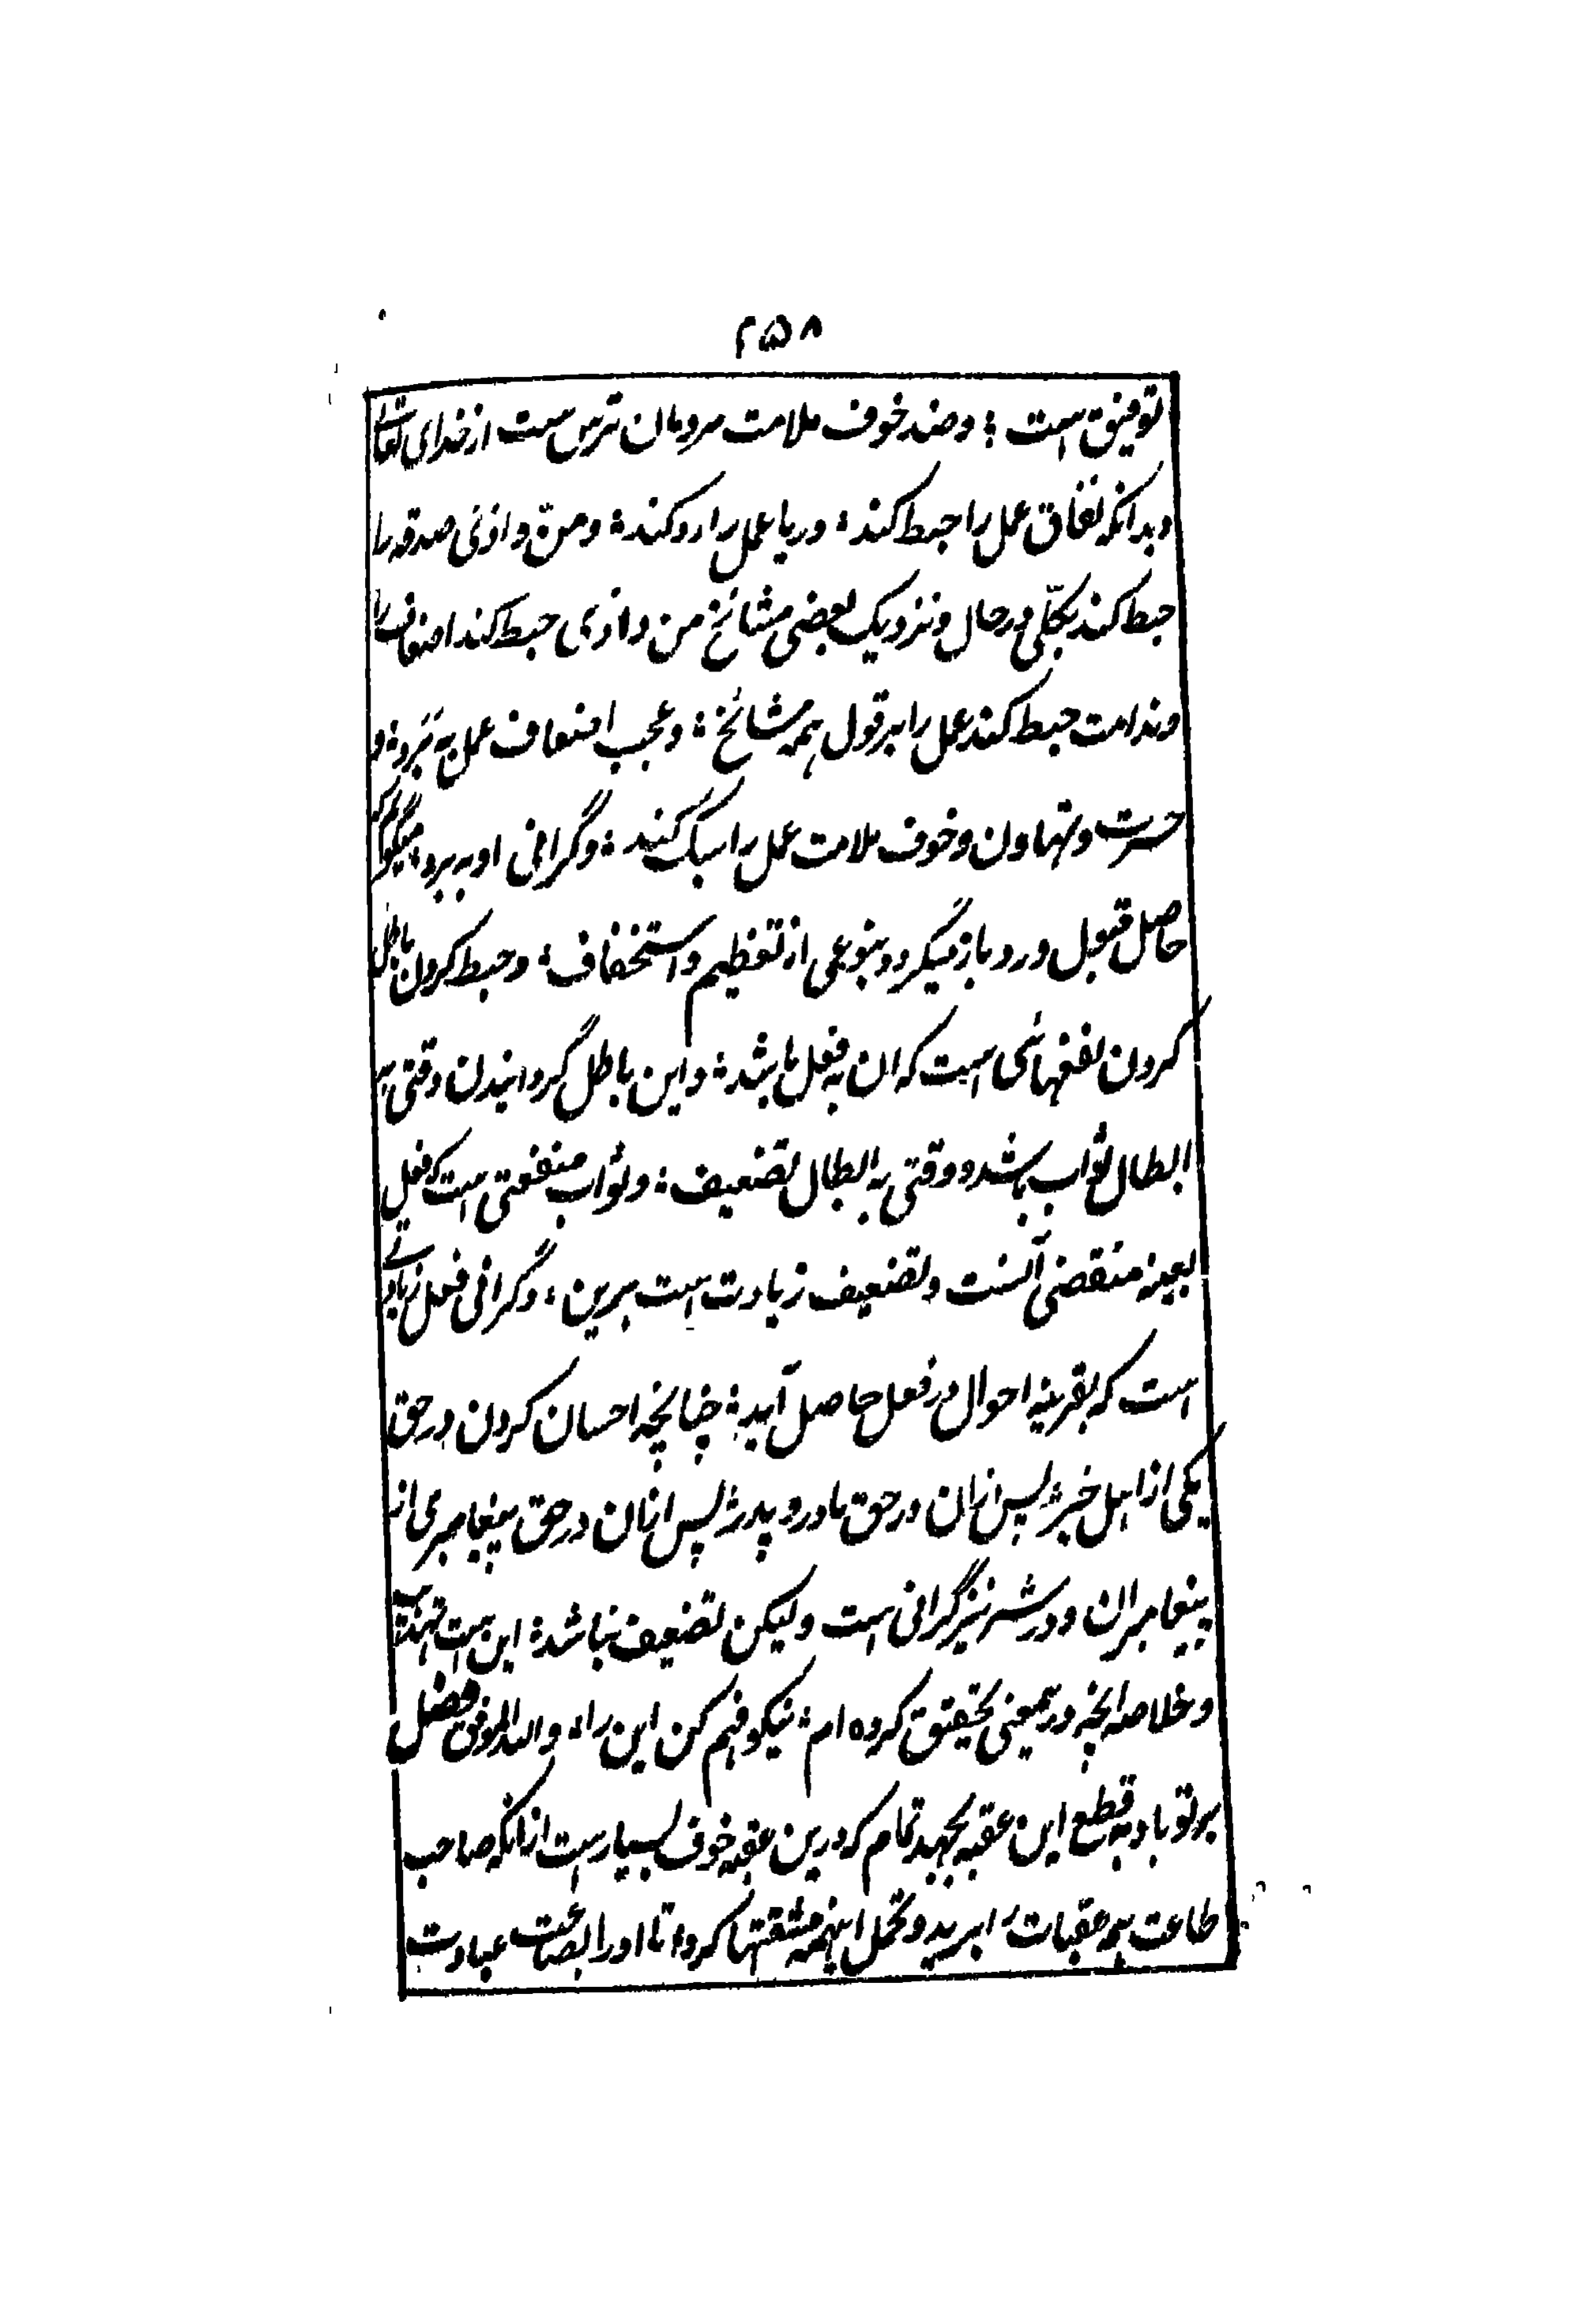 ۲۵۸
توفیق است ؛ و ضد خوف ملامت مردمان ترس ست از خدای تعالی
و بدانکه نفاق عمل را حبط کند ؛ و ریا عمل را رد کند ؛ و منّ و اذی صدقه را
حبط کند بکلّی در حال و نزدیک بعضی مشائخ من و اذی حبط کند اضعاف را
و ندامت حبط کند عمل را بر قول همه مشائخ ؛ و عجب اضعاف عمل به بَرَد ؛ و
حسرت و تهاون و خوف ملامت عمل را سبک کند ؛ و گرانی او به برد ؛ میگویم که
حاصل قبول و رد باز میگردد بنوعی از تعظیم و استخفاف ؛ و حبط کردن باطل
کردن نفعهائی است که ان به فعل باشد ؛ و این باطل گردانیدن وقتی به
ابطال ثواب باشد و وقتی به ابطال تضعیف ؛ و ثواب منفعتی است که فعل
بعینه مقتضی آنست و تضعیف زیادت است برین ؛ و گرانی فعل زیادتے
است که بقرینه احوال در فعل حاصل آید ؛ چنانچه احسان کردن در حق
یکی از اهل خیر ؛ پس ازان در حق مادر و پدر ؛ پس ازان در حق پیغامبری از
پیغامبران و در شر نیز گرانی است و لیکن تضعیف نباشد ؛ این ست
و خلاصه انچه درینمعنی تحقیق کرده ام ؛ نیکو فهم کن این را ؛ والله الموفق فصل
بر تو باد به قطع این عقبه بجهد تمام که درین عقبه خوف بسیار است ازانکه صاحب
طاعت همه عقبات را ببرید و تحمل اینهمه مشقتها کرد ؛ تا اورا بضاعت عبادت